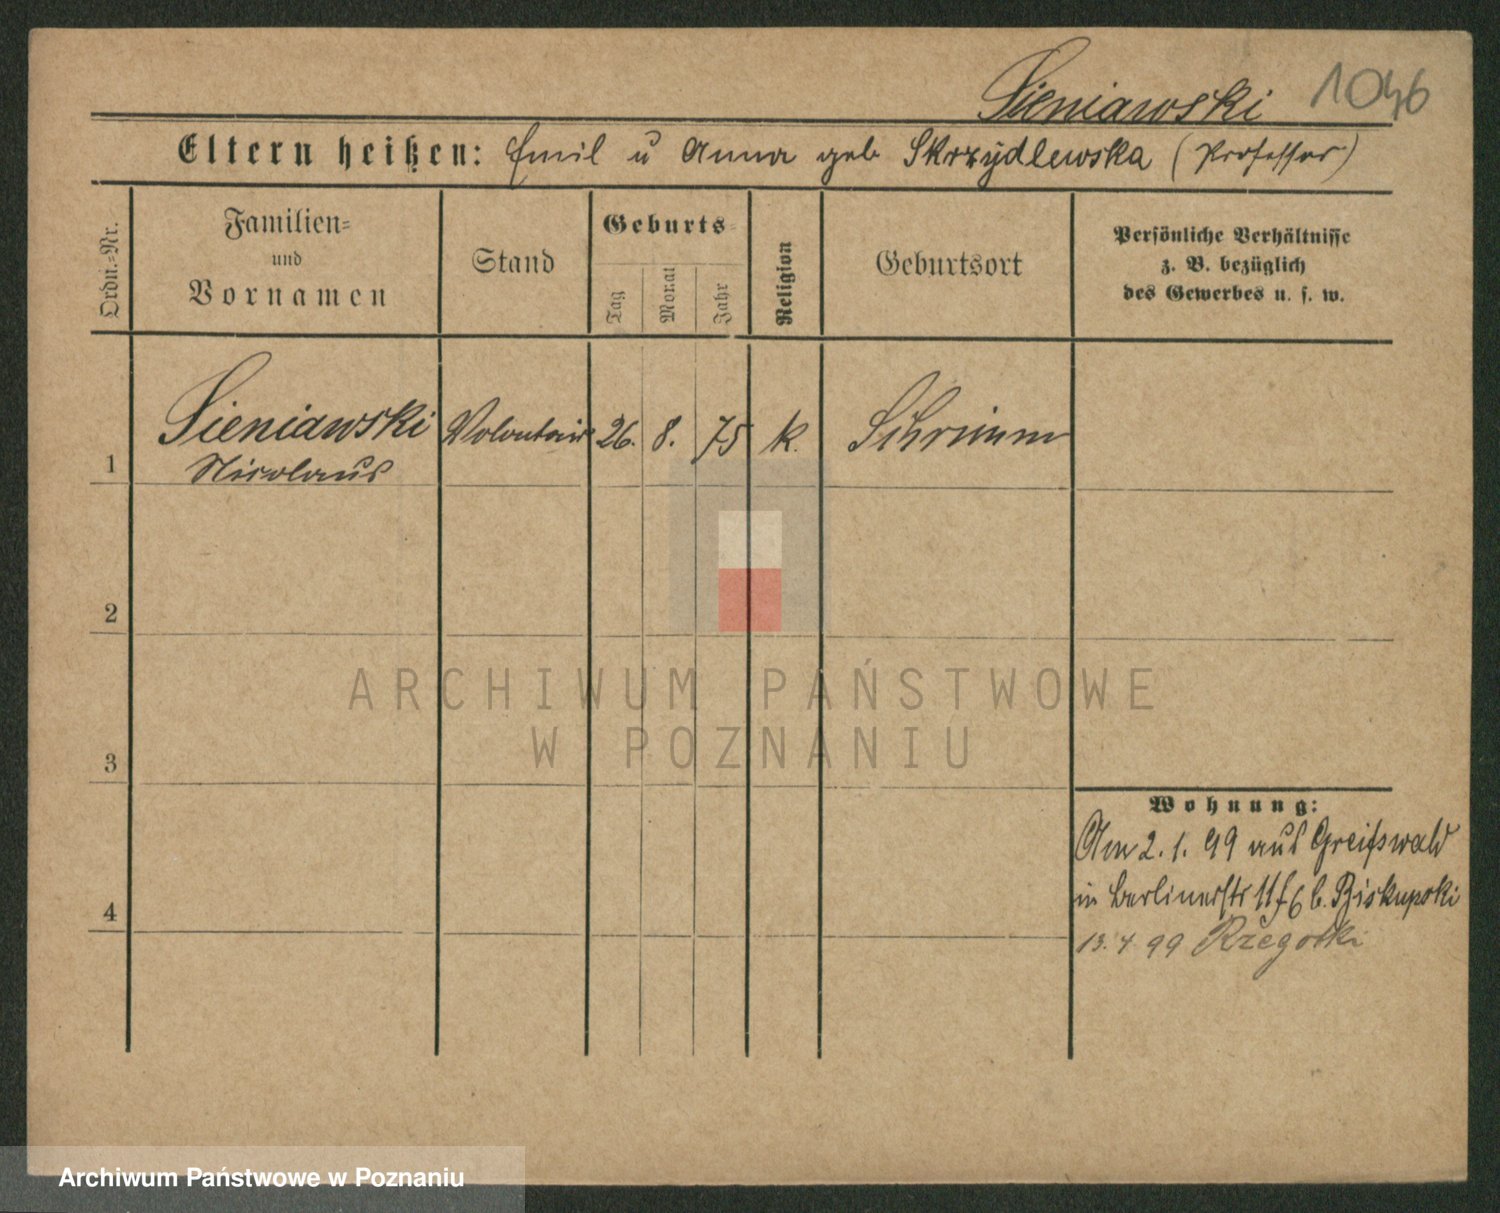 Sieniawski 1046
Eltern heißen: Emil u Anna geb Skrzydlewska (Professor)
Ordn.-Nr.
Familien-
und
Vornamen
Stand
Geburts-
Tag
Monat
Jahr
Religion
Geburtsort
Persönliche Verhältnisse
z. B. bezüglich
des Gewerbes u. s. w.
1 Sieniawski Volontair 26. 8. 75 k. Schrimm
Nicolaus
2
3
4
ARCHIWUM PAŃSTWOWE
W POZNANIU
Wohnung:
Am 2. 1. 99 aus Greifswald
in Berlinerstr 11 b. Biskupski
13. 4 99
Archiwum Państwowe w Poznaniu